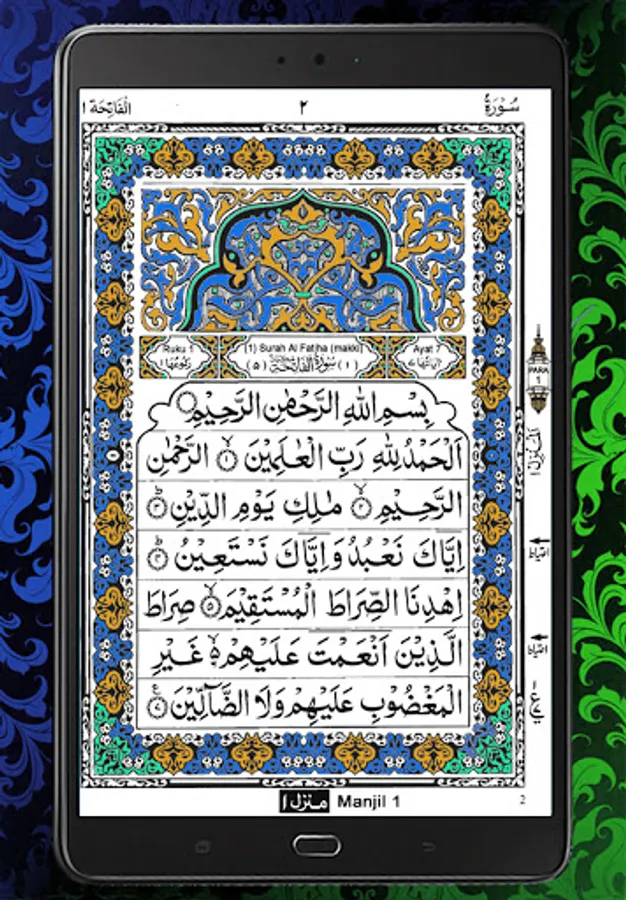 سُوْرَةُ ٢ الْفَاتِحَة ١
Ruku 1 (1) Surah Al Fatiha (makki) Ayat 7
رُكُوْعُهَا ١ (٥) سُوْرَةُ الْفَاتِحَةِ (١) اٰيَاتُهَا ٧
PARA
1
بِسْمِ اللهِ الرَّحْمٰنِ الرَّحِيْمِ
اَلْحَمْدُ لِلّٰهِ رَبِّ الْعٰلَمِيْنَ ۙ﴿١﴾ الرَّحْمٰنِ
الرَّحِيْمِ ۙ﴿٢﴾ مٰلِكِ يَوْمِ الدِّيْنِ ؕ﴿٣﴾
اِيَّاكَ نَعْبُدُ وَاِيَّاكَ نَسْتَعِيْنُ ؕ﴿٤﴾
اِهْدِنَا الصِّرَاطَ الْمُسْتَقِيْمَ ۙ﴿٥﴾ صِرَاطَ
الَّذِيْنَ اَنْعَمْتَ عَلَيْهِمْ ۙ۬﴿٦﴾ غَيْرِ
الْمَغْضُوْبِ عَلَيْهِمْ وَلَا الضَّآلِّيْنَ ﴿٧﴾
اَلْمَنْزِلُ ١
منزل ١ Manjil 1 2